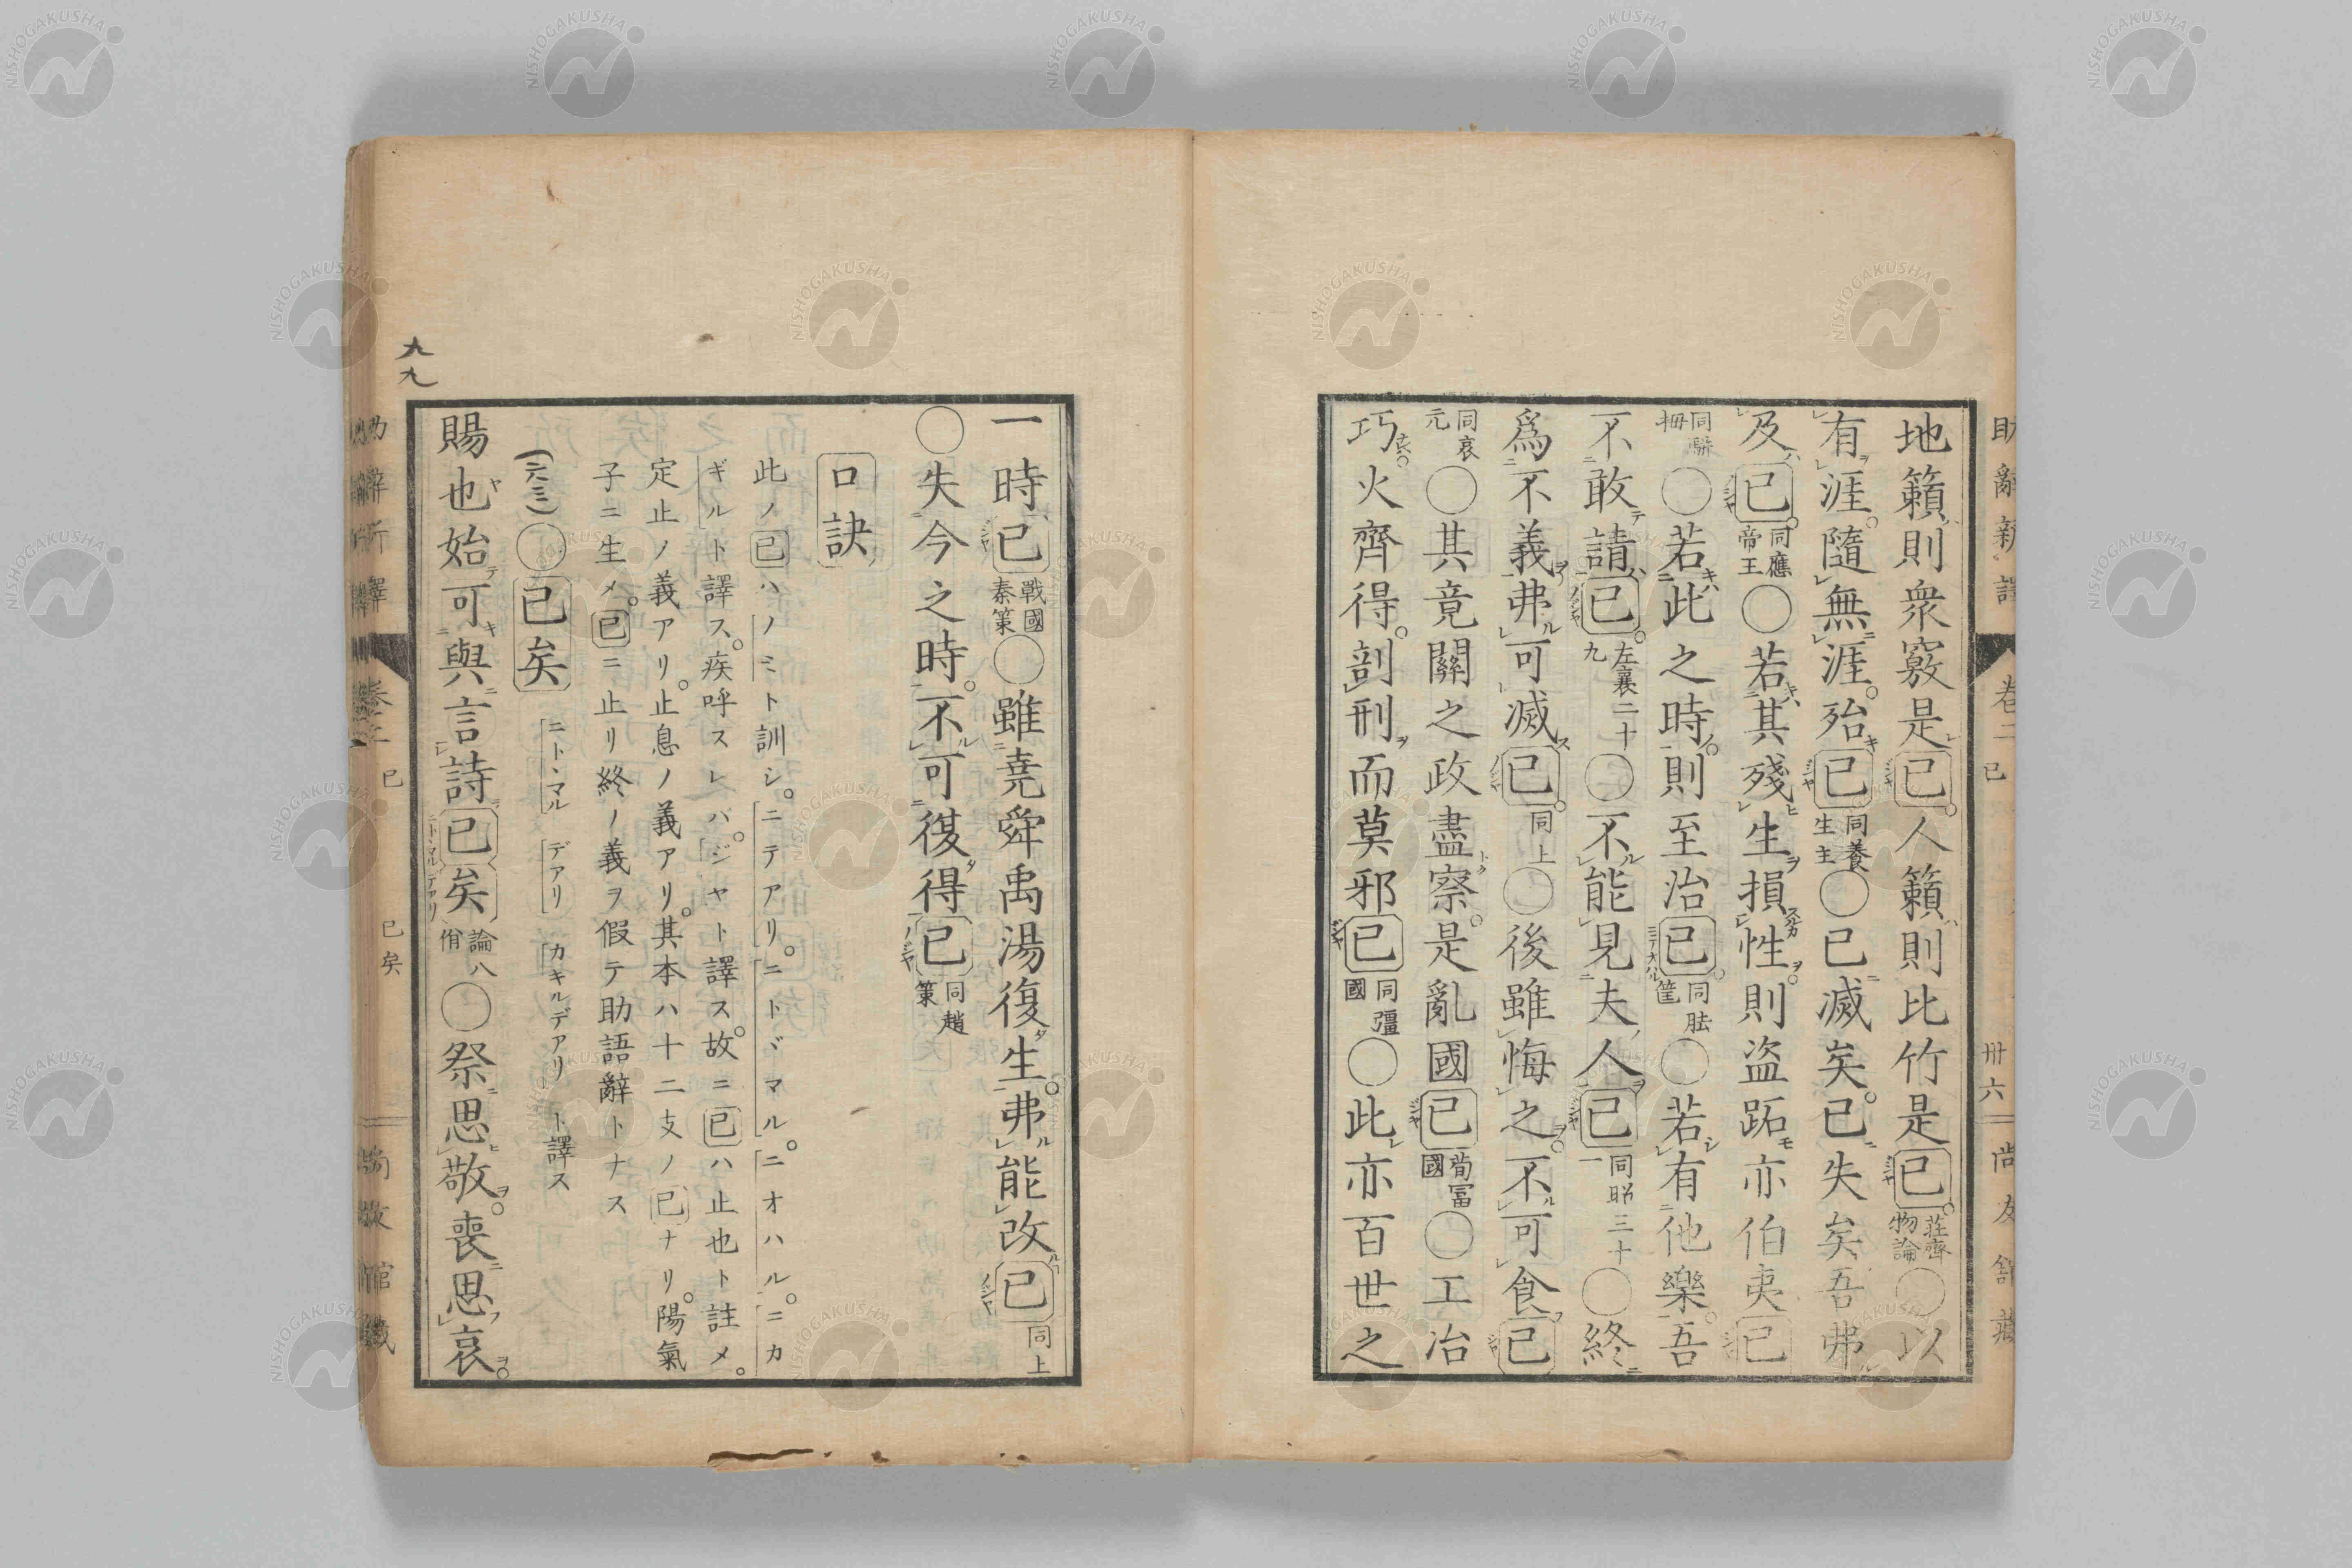 地籟則衆竅是已人籟則比竹是已莊齊物論〇以
有涯隨無涯殆已同養生主〇已滅矣已失矣吾弗
及已同應帝王〇若其殘生損性則盗跖亦伯夷已
同駢拇〇若此之時則至治已同胠篋〇若有他樂吾
不敢請已左襄二十九〇不能見夫人已同昭三十一〇終
爲不義弗可滅已同上〇後雖悔之不可食已
同哀元〇其竟關之政盡察是亂國已荀冨國〇工冶
巧火齊得剖刑而莫邪已同彊國〇此亦百世之
助辭新譯 卷二 已 卅六
一時已戰國秦策〇雖堯舜禹湯復生弗能改已同上
〇失今之時不可復得已同趙策
口訣
此ノ已ハノミト訓シ。ニテアリ。ニトヾマル。ニオハル。ニカ
ギルト譯ス。疾呼スレバ。ジヤト譯ス。故ニ已ハ止也ト註メ。
定止ノ義アリ。止息ノ義アリ。其本ハ十二支ノ已ナリ。陽氣
子ニ生メ。已ニ止リ終ノ義ヲ假テ助語辭トナス
(六三)〇已矣 ニトヽマル デアリ カキルデアリ ト譯ス
賜也始可與言詩已矣論八佾〇祭思敬。喪思哀。
卷二 已 已矣
九九
NISHOGAKUSHA